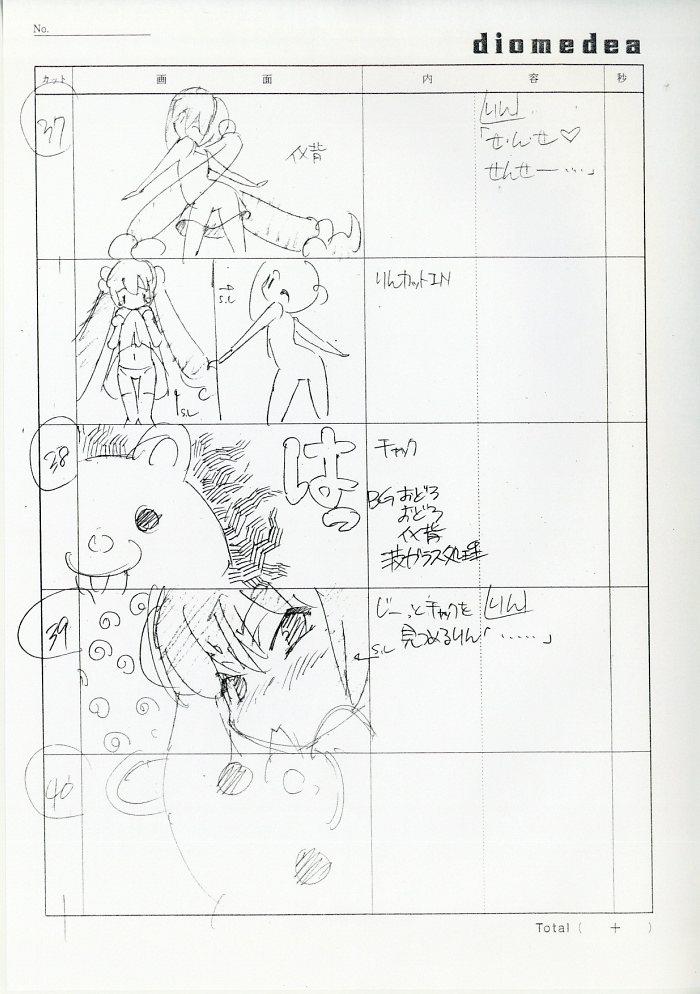 No.
diomedea
カット 画 面 内 容 秒
37
イメ背
りん
「せんせ♡
せんせー……」
→
S.L
S.L
りんカットIN
38
はっ
チャック
BGおどろ
おどろ
イメ背
波ガラス処理
39
じーっとチャックを
見つめるりん
りん
「……」
S.L
40
Total ( + )